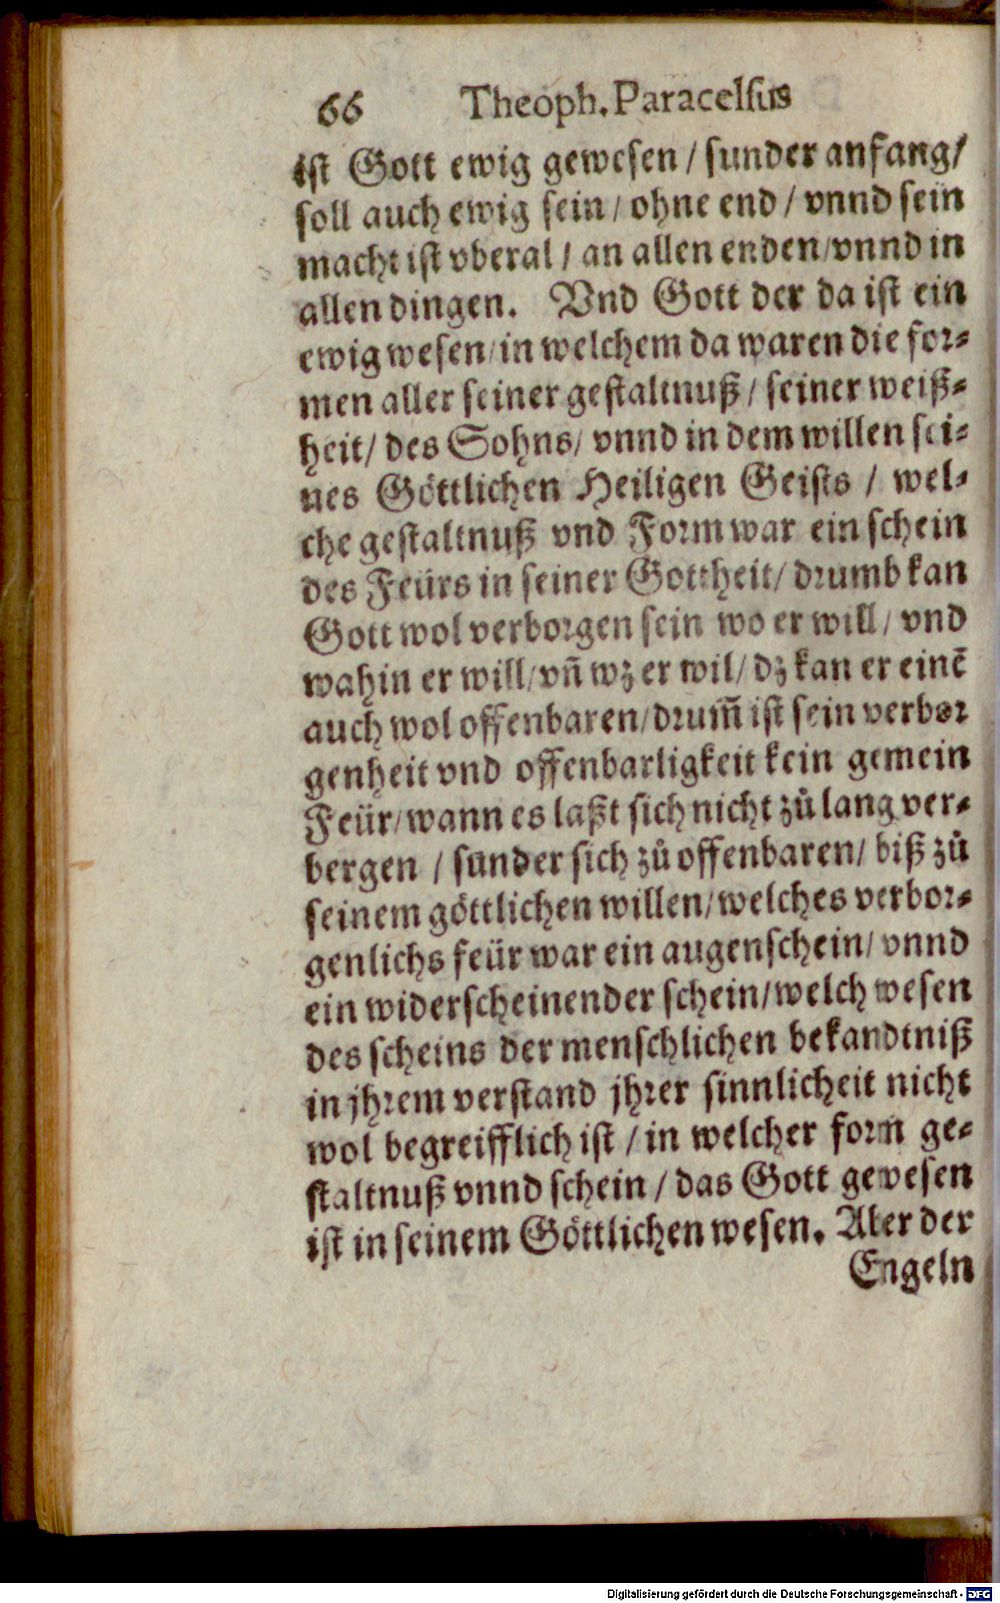 66 Theoph. Paracelsus
ist Gott ewig gewesen / sunder anfang/
soll auch ewig sein / ohne end / vnnd sein
macht ist vberal / an allen enden/vnnd in
allen dingen. Vnd Gott der da ist ein
ewig wesen/in welchem da waren die for⸗
men aller seiner gestaltnuß / seiner weiß⸗
heit/ des Sohns/ vnnd in dem willen sei⸗
nes Göttlichen Heiligen Geists / wel⸗
che gestaltnuß vnd Form war ein schein
des Feürs in seiner Gottheit/ drumb kan
Gott wol verborgen sein wo er will/ vnd
wahin er will/vñ wz er wil/ dz kan er einē
auch wol offenbaren/drum̄ ist sein verbor
genheit vnd offenbarligkeit kein gemein
Feür/wann es laßt sich nicht zů lang ver⸗
bergen / sunder sich zů offenbaren/ biß zů
seinem göttlichen willen/welches verbor⸗
genlichs feür war ein augenschein/ vnnd
ein widerscheinender schein/welch wesen
des scheins der menschlichen bekandtniß
in jhrem verstand jhrer sinnlicheit nicht
wol begreifflich ist / in welcher form ge⸗
staltnuß vnnd schein / das Gott gewesen
ist in seinem Göttlichen wesen. Aber der
Engeln
Digitalisierung gefördert durch die Deutsche Forschungsgemeinschaft - DFG